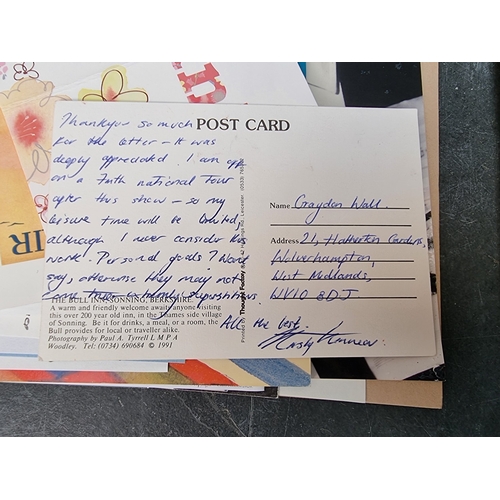 POST CARD
Thankyou so much
for the letter - it was
deeply appreciated. I am off
on a 7mth national Tour
after this show - so my
leisure time will be limited,
although I never consider this
work! Personal goals? I won't
say, otherwise they may not
THE BULL INN, SONNING, BERKSHIRE.
A warm and friendly welcome awaits anyone visiting
this over 200 year old inn, in the Thames side village
of Sonning. Be it for drinks, a meal, or a room, the
Bull provides for local or traveller alike.
Photography by Paul A. Tyrrell L M P A
Woodley. Tel: (0734) 690684 © 1991
All the best,
Printed by Thought Factory
Leicester (0533)
Name Craydon Wall
Address 21, Hatherton Gardens,
Wolverhampton,
West Midlands,
WV10 8DJ